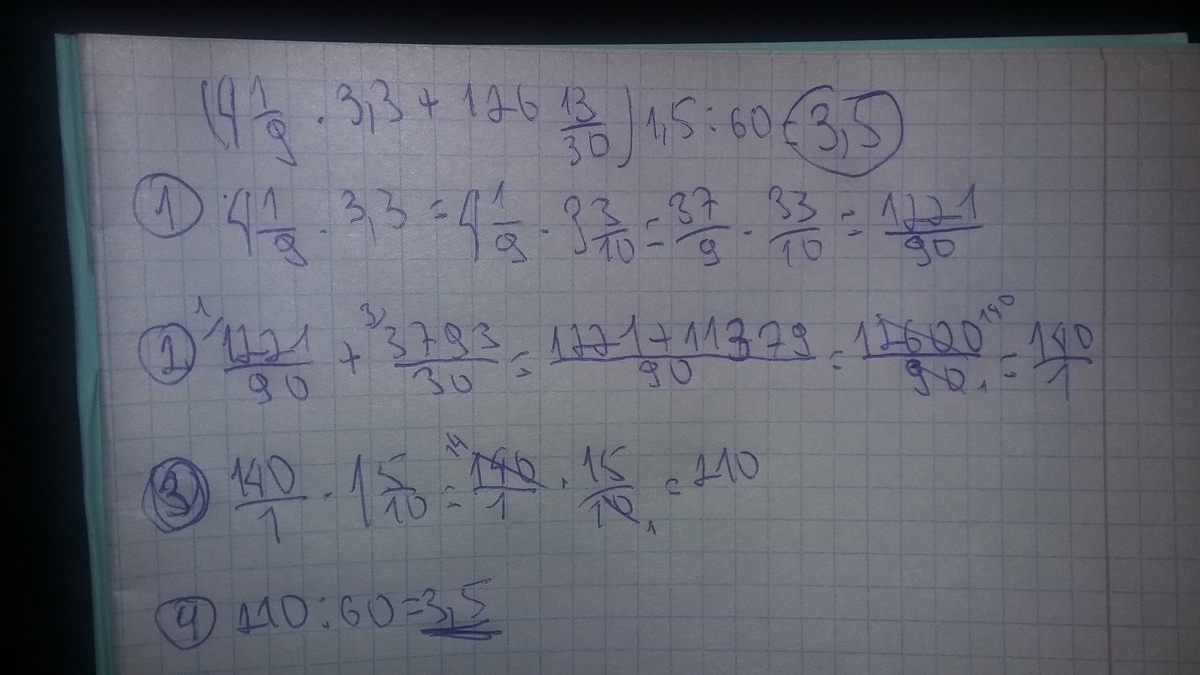 (4 1/9 · 3,3 + 126 13/30) 1,5 : 60 = 3,5
1 4 1/9 · 3,3 = 4 1/9 · 3 3/10 = 37/9 · 33/10 = 1221/90
2 1/ 1221/90 + 3/ 3793/30 = 1221+11379/90 = 12600 140/90 1 = 140/1
3 140/1 · 1 5/10 = 14 140/1 · 15/10 1 = 210
4 210 : 60 = 3,5